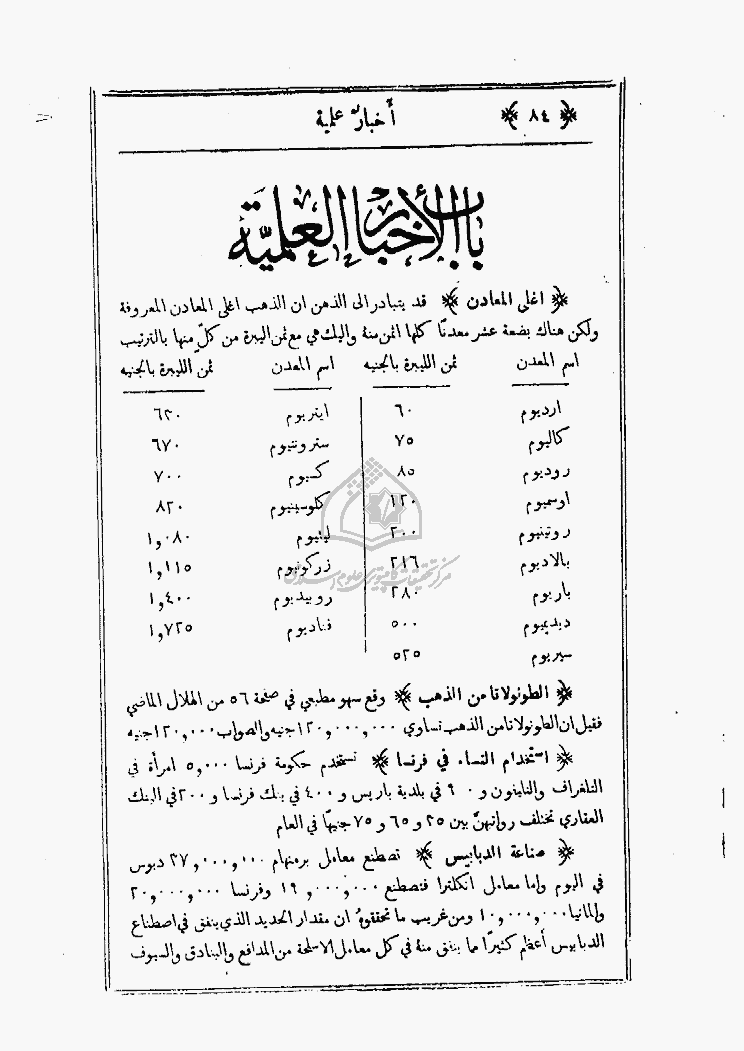 ﴿ ٨٤ ﴾ أخبار علمية
باب الأخبار العلمية
﴿ اغلى المعادن ﴾ قد يتبادر الى الذهن ان الذهب اغلى المعادن المعروفة
ولكن هناك بضعة عشر معدنًا كلها اثمن منهُ واليك هي مع ثمن الليبرة من كلٍّ منها بالترتيب
اسم المعدن ثمن الليبرة بالجنيه اسم المعدن ثمن الليبرة بالجنيه
ارديوم ٦٠ ايتريوم ٦٣٠
كاليوم ٧٥ سترونتيوم ٦٧٠
روديوم ٨٥ كسيوم ٧٠٠
اوسميوم ١٢٠ كلوسينيوم ٨٢٠
روتينيوم ٢٠٠ ليثيوم ١,٠٨٠
بالاديوم ٢١٦ زركونيوم ١,١١٥
باريوم ٢٨٠ روبيديوم ١,٤٠٠
ديديميوم ٥٠٠ فناديوم ١,٧٢٥
سيريوم ٥٢٥
مركز تحقيقات كامپيوتري علوم اسلامي
﴿ الطونولاتا من الذهب ﴾ وقع سهو مطبعي في صفحة ٥٦ من الهلال الماضي
فقيل ان الطونولاتا من الذهب تساوي ١٢٠,٠٠٠,٠٠٠ جنيه والصواب ١٢٠,٠٠٠ جنيه
﴿ استخدام النساء في فرنسا ﴾ تستخدم حكومة فرنسا ٥,٠٠٠ امرأة في
التلغراف والتليفون و ٦٠٠ في بلدية باريس و ٤٠٠ في بنك فرنسا و ٢٠٠ في البنك
العقاري تختلف رواتبهنَّ بين ٢٥ و ٦٥ و ٧٥ جنيهًا في العام
﴿ صناعة الدبابيس ﴾ تصطنع معامل برمنهام ٣٧,٠٠٠,٠٠٠ دبوس
في اليوم واما معامل انكلترا فتصطنع ١٩,٠٠٠,٠٠٠ وفرنسا ٢٠,٠٠٠,٠٠٠
والمانيا ١٠,٠٠٠,٠٠٠ ومن غريب ما تحققوهُ ان مقدار الحديد الذي ينفق في اصطناع
الدبابيس أعظم كثيرًا مما ينفق منهُ في كل معامل الاسلحة من المدافع والبنادق والسيوف